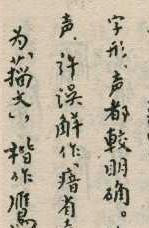 字形、声都較明确。
声。许误解作“瘖省
为“猫文”，稽作雁